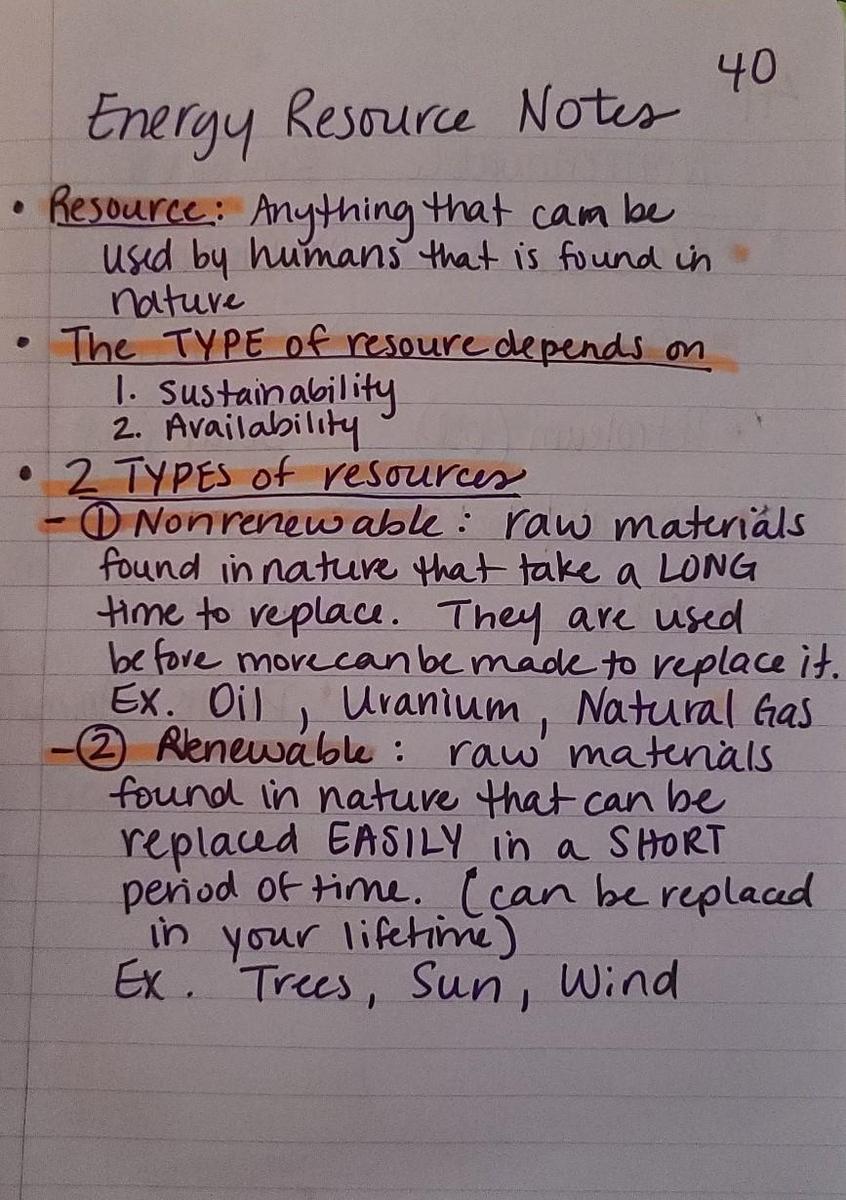 40
Energy Resource Notes
• Resource: Anything that can be
used by humans that is found in
nature
• The TYPE of resoure depends on
1. Sustainability
2. Availability
• 2 TYPES of resources
- ① Nonrenewable: raw materials
found in nature that take a LONG
time to replace. They are used
before more can be made to replace it.
Ex. Oil, Uranium, Natural Gas
- ② Renewable: raw materials
found in nature that can be
replaced EASILY in a SHORT
period of time. (can be replaced
in your lifetime)
Ex. Trees, Sun, Wind